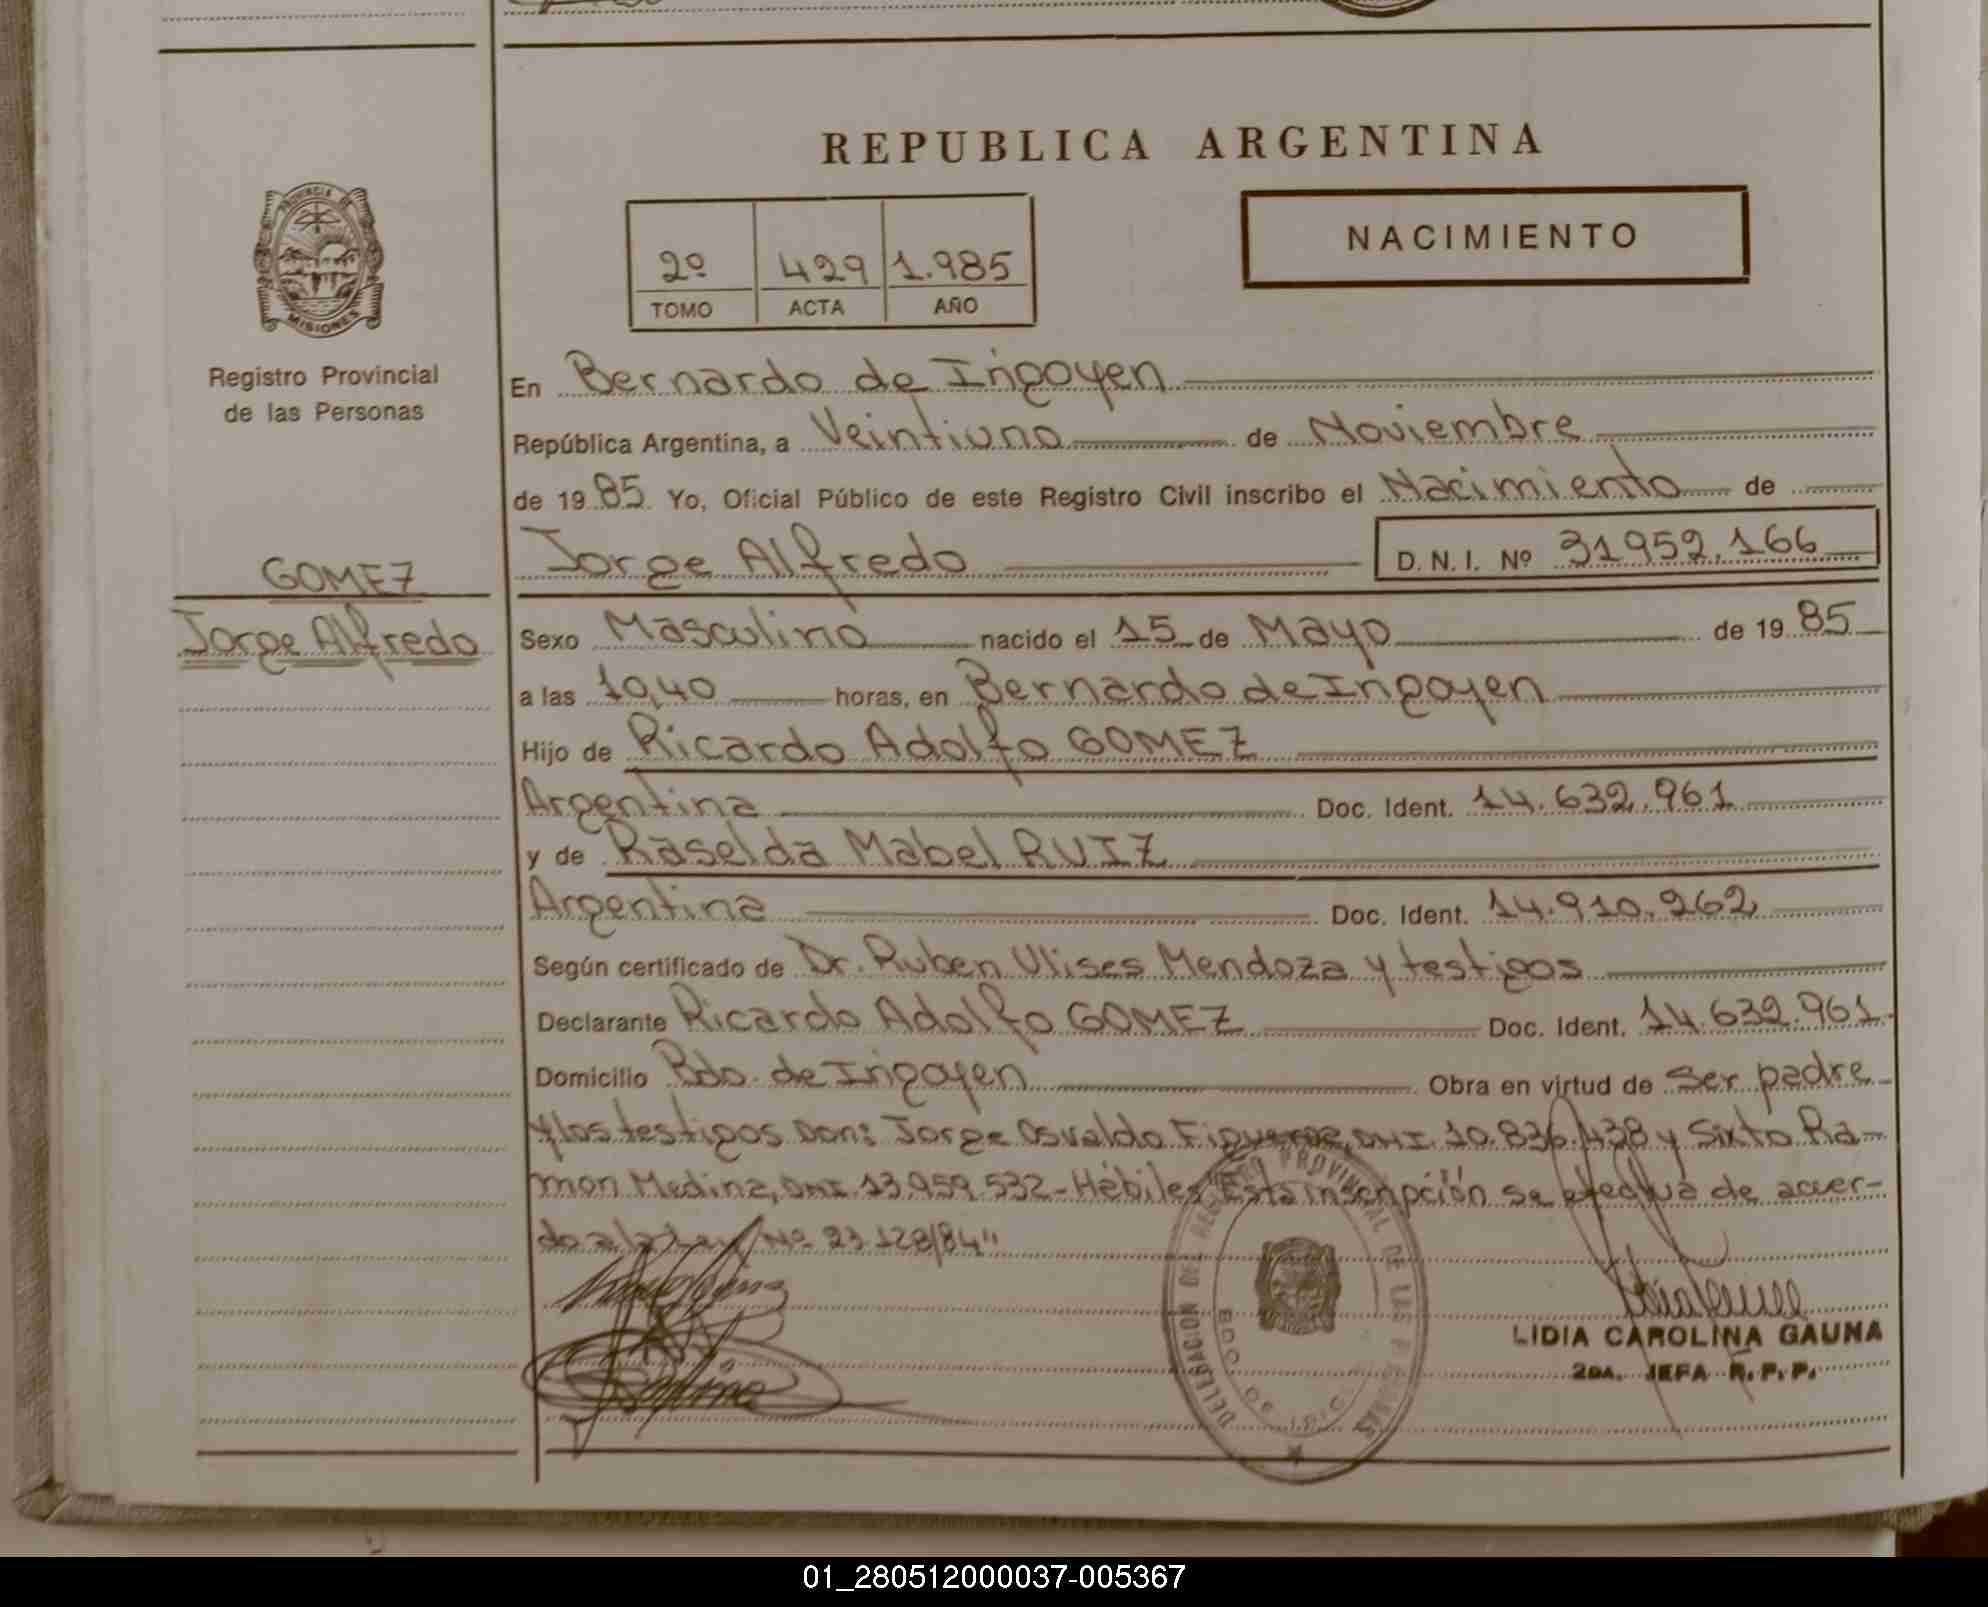 REPUBLICA ARGENTINA
NACIMIENTO
2º 429 1.985
TOMO ACTA AÑO
PROVINCIA DE
MISIONES
Registro Provincial
de las Personas
GOMEZ
Jorge Alfredo
En Bernardo de Irigoyen
República Argentina, a Veintiuno de Noviembre
de 19 85 Yo, Oficial Público de este Registro Civil inscribo el Nacimiento de
Jorge Alfredo D. N. I. Nº 31952.166
Sexo Masculino nacido el 15 de Mayo de 19 85
a las 10,40 horas, en Bernardo de Irigoyen
Hijo de Ricardo Adolfo GOMEZ
Argentina Doc. Ident. 14.632.961
y de Raselda Mabel RUIZ
Argentina Doc. Ident. 14.910.262
Según certificado de Dr. Ruben Ulises Mendoza y testigos
Declarante Ricardo Adolfo GOMEZ Doc. Ident. 14.632.961
Domicilio Bdo. de Irigoyen Obra en virtud de ser padre
y los testigos Don: Jorge Osvaldo DNI. 10.836.438 y Sixto Ra-
mon Medina, DNI. 13.959.532 - Hábiles "Esta inscripción se efectua de acuer-
do a la Ley Nº 23.128/84"
DELEGACION DEL REGISTRO PROVINCIAL DE LAS PERSONAS
BDO. DE IRIG.
LIDIA CAROLINA GAUNA
2DA. JEFA R. P. P.
01_280512000037-005367